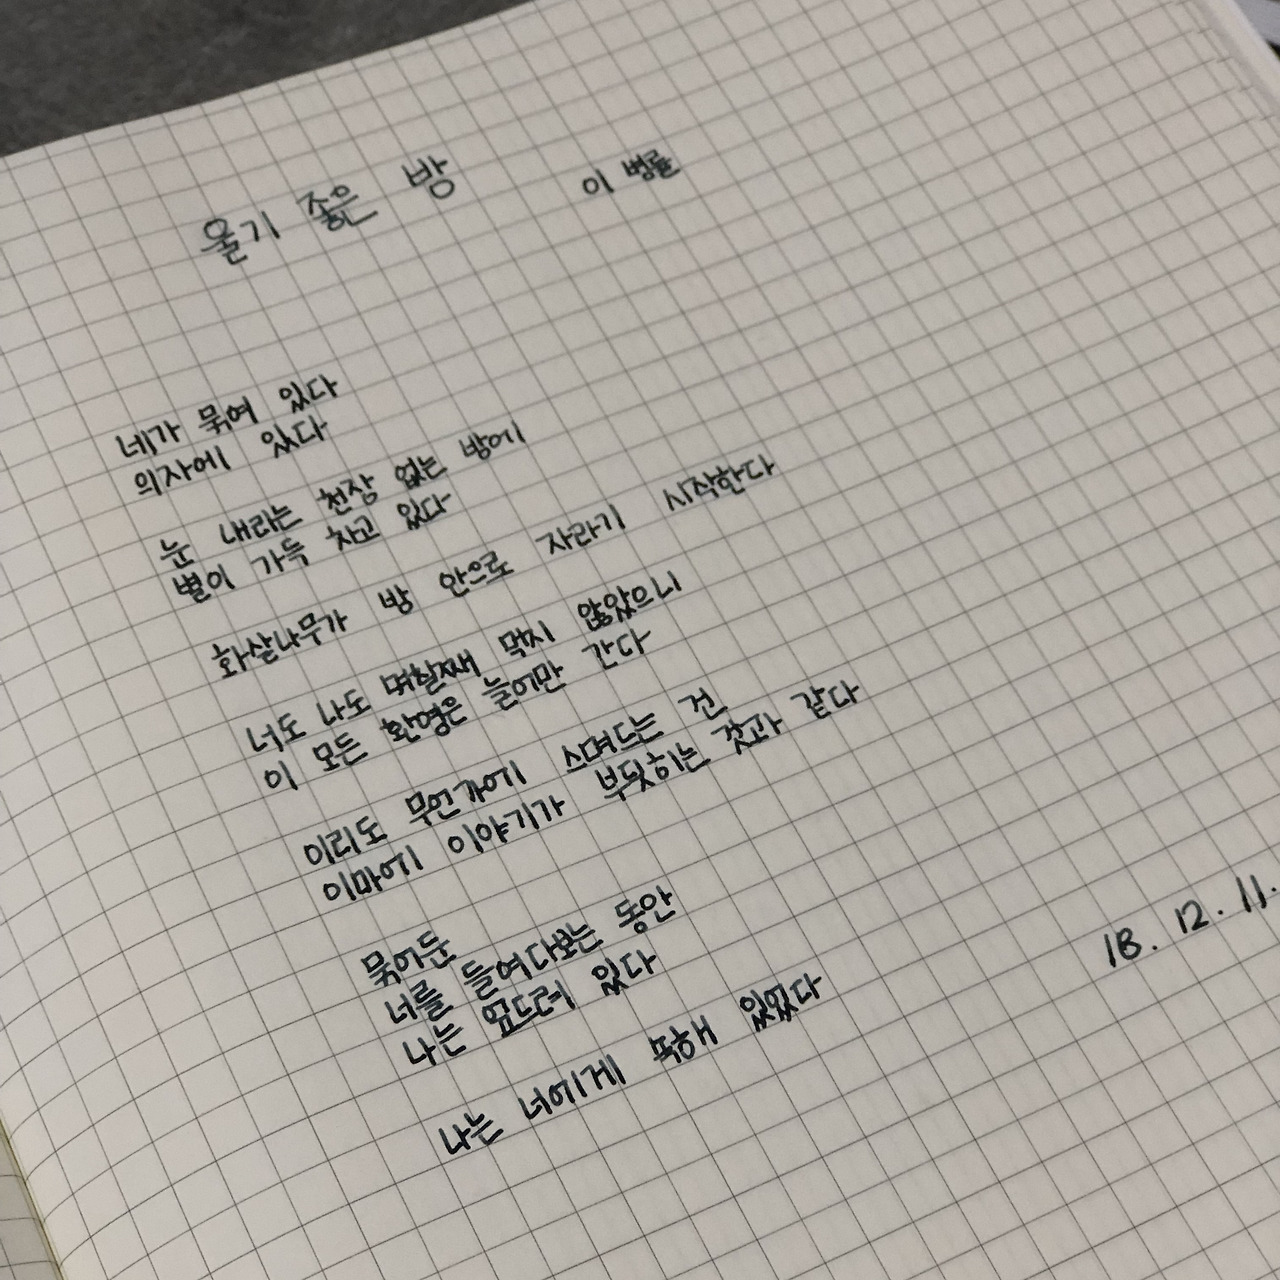 울기 좋은 방 이병률
네가 묶여 있다
의자에 있다
눈 내리는 천장 없는 방에
별이 가득 차고 있다
화살나무가 방 안으로 자라기 시작한다
너도 나도 며칠째 먹지 않았으니
이 모든 환영은 늘어만 간다
이리도 무언가에 스며드는 건
이마에 이야기가 부딪히는 것과 같다
묶어둔
너를 들여다보는 동안
나는 엎드려 있다
나는 너에게 속해 있었다
18. 12. 11.